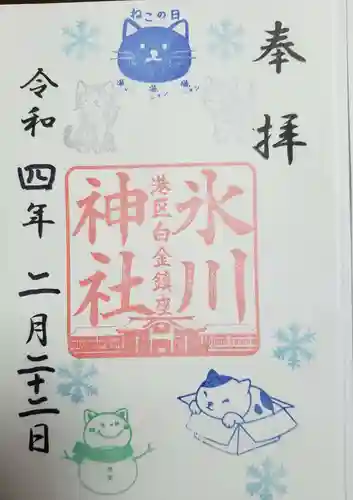 奉拝
ねこの日
氷川
港区白金鎮座
神社
令和四年二月二十二日